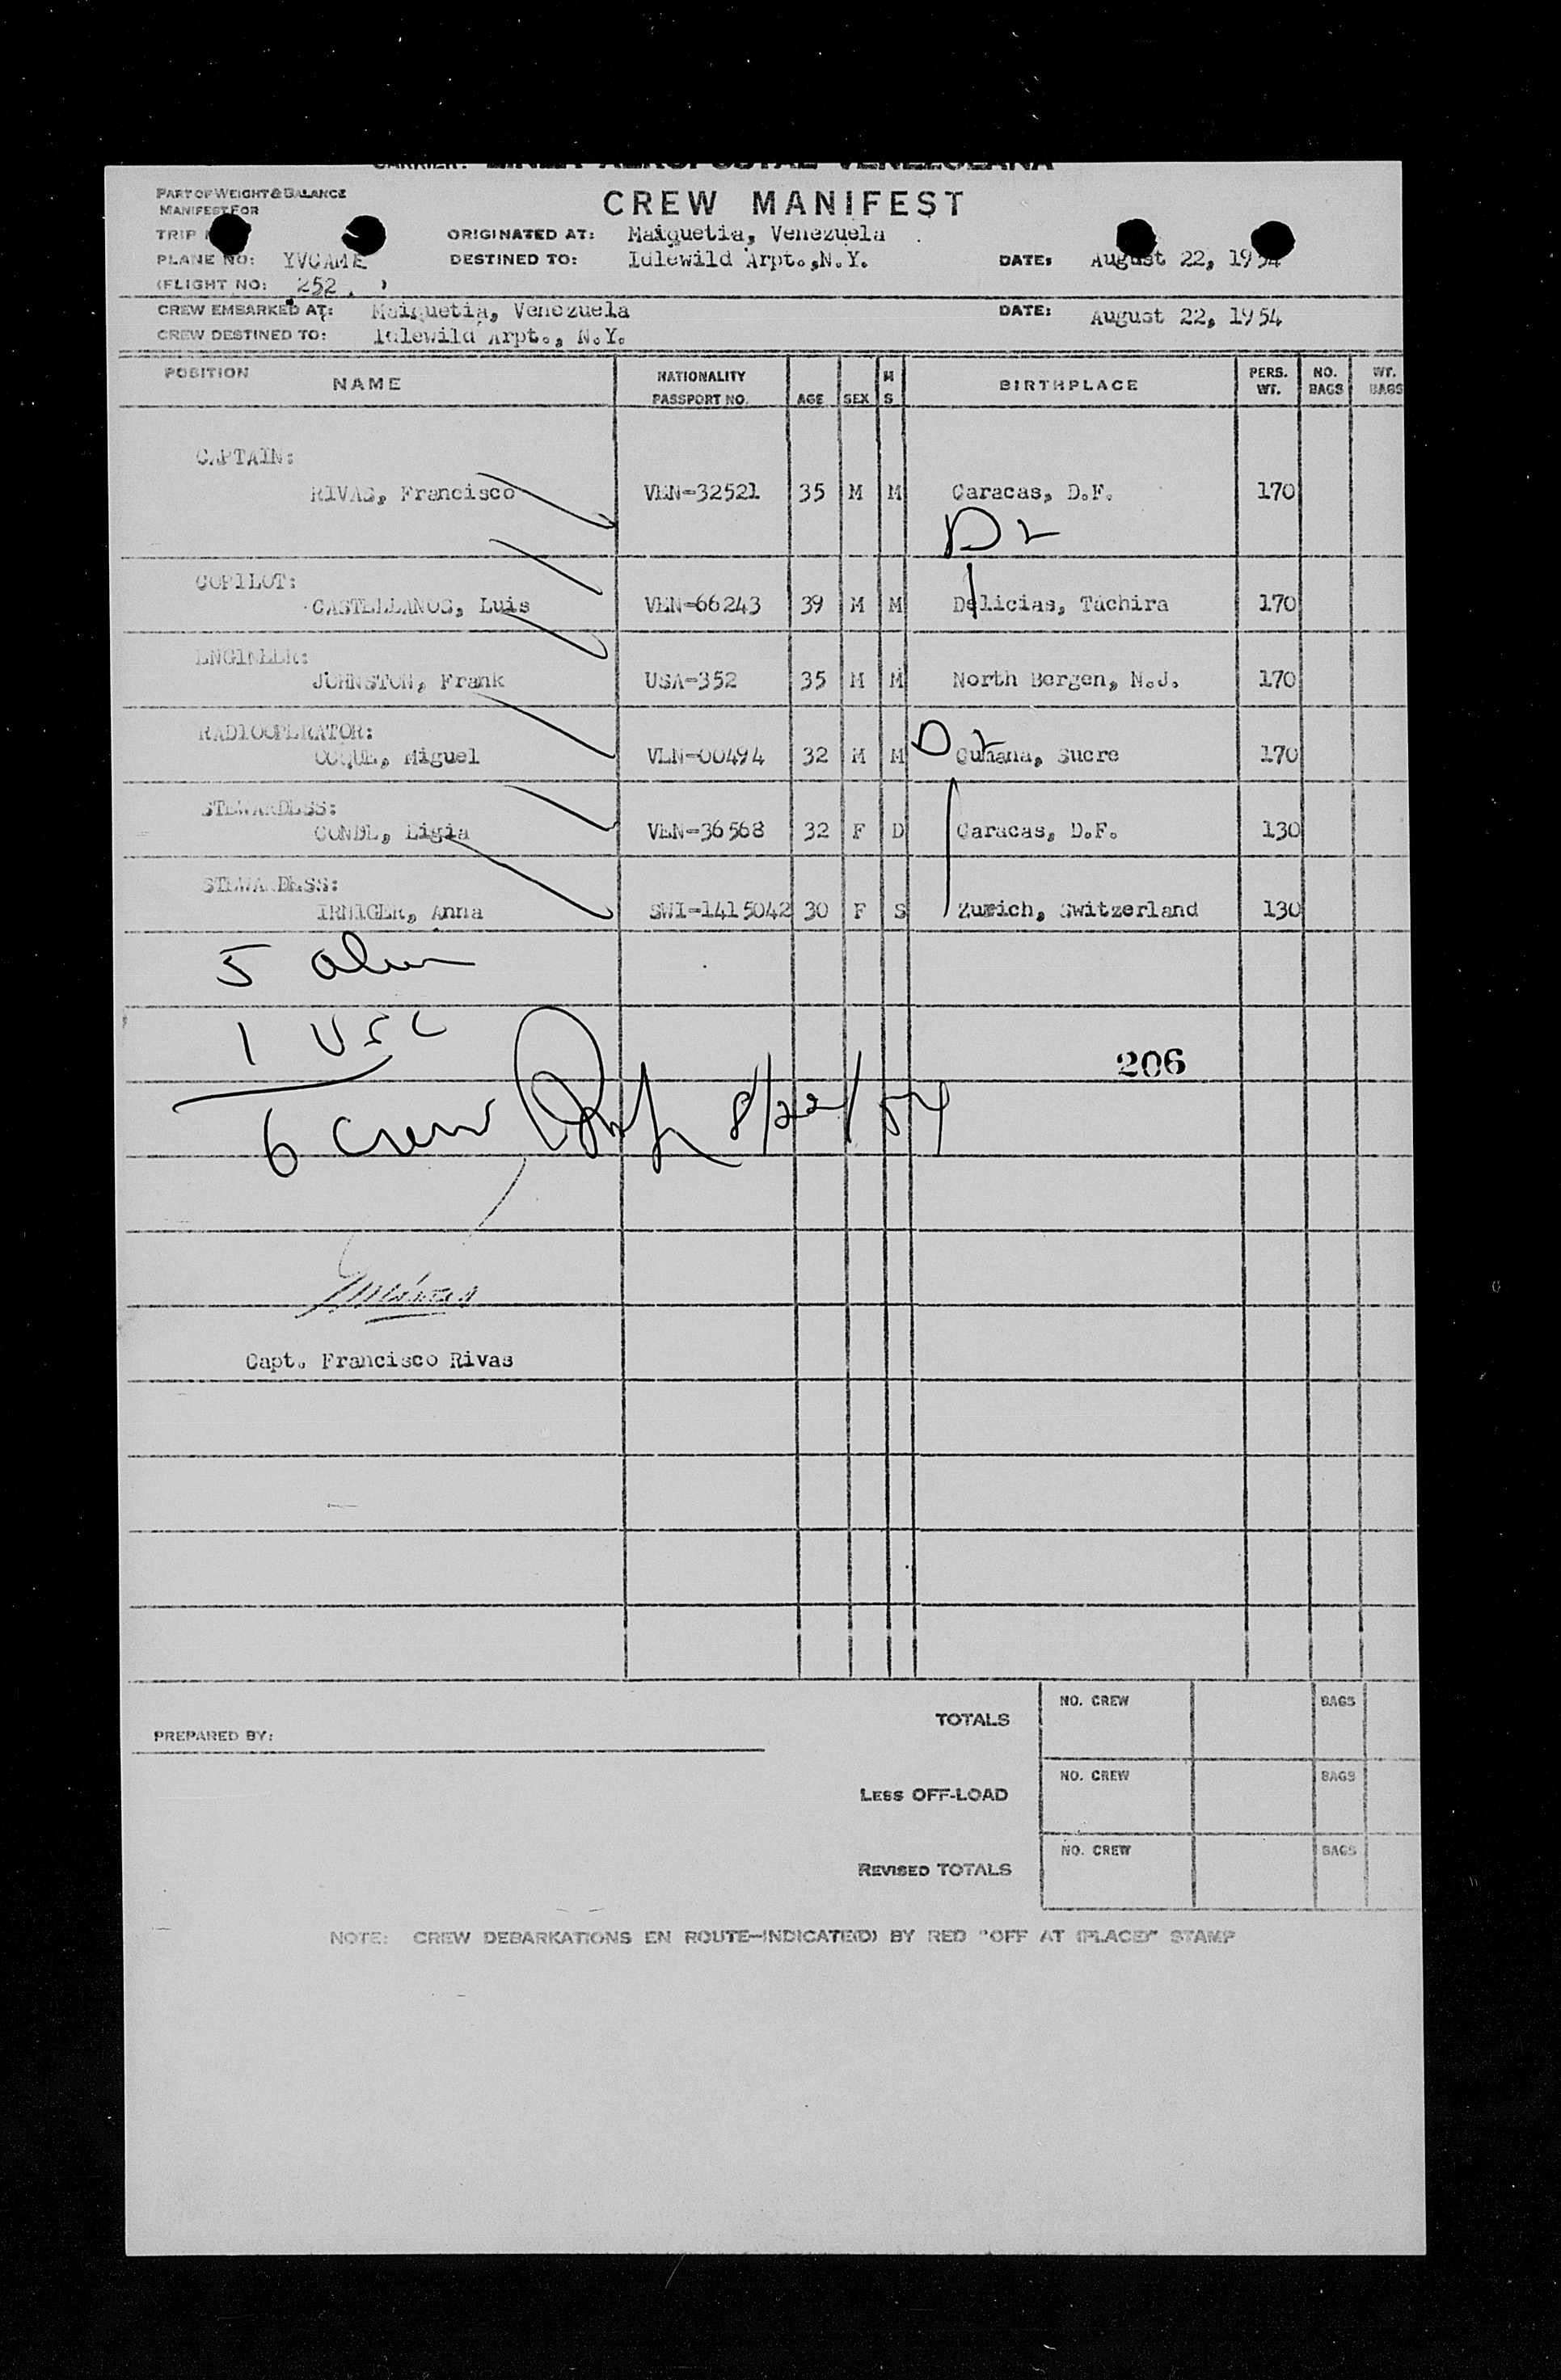 CARRIER: LINEA AEROPOSTAL VENEZOLANA
PART OF WEIGHT & BALANCE
MANIFEST FOR
CREW MANIFEST
TRIP
ORIGINATED AT: Maiquetia, Venezuela
PLANE NO: YVCAME DESTINED TO: Idlewild Arpt.,N.Y. DATE: August 22, 1954
(FLIGHT NO: 252 )
CREW EMBARKED AT: Maiquetia, Venezuela DATE: August 22, 1954
CREW DESTINED TO: Idlewild Arpt., N.Y.
POSITION NAME NATIONALITY PASSPORT NO. AGE SEX M S BIRTHPLACE PERS. WT. NO. BAGS WT. BAGS
CAPTAIN:
RIVAS, Francisco VEN-32521 35 M M Caracas, D.F. 170
COPILOT:
CASTELLANOS, Luis VEN-66243 39 M M Delicias, Tachira 170
ENGINEER:
JOHNSTON, Frank USA-352 35 M M North Bergen, N.J. 170
RADIOOPERATOR:
COQUE, Miguel VEN-00494 32 M M Cumana, Sucre 170
STEWARDESS:
CONDE, Ligia VEN-36568 32 F D Caracas, D.F. 130
STEWARDESS:
IRNIGER, Anna SWI-1415042 30 F S Zurich, Switzerland 130
5
1 USC
206
6 Crew 8/22/54
Capt. Francisco Rivas
TOTALS NO. CREW BAGS
PREPARED BY:
LESS OFF-LOAD NO. CREW BAGS
REVISED TOTALS NO. CREW BAGS
NOTE: CREW DEBARKATIONS EN ROUTE—INDICATE(D) BY RED "OFF AT (PLACE)" STAMP